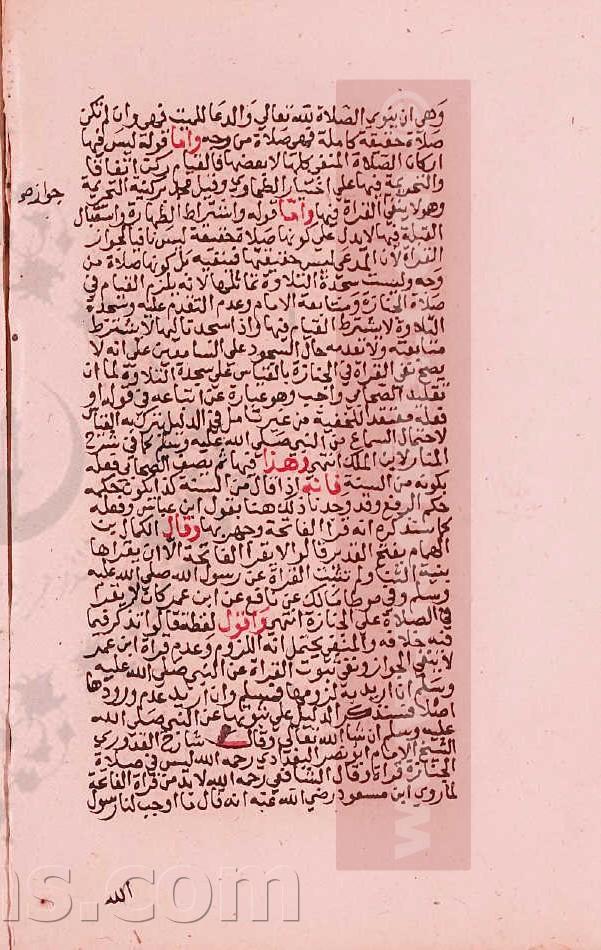 وهي ان ينوي الصلاة لله تعالى والدعا للميت فهي وان لم تكن
صلاة حقيقة كاملة فهي صلاة من وجه واما قوله ليس فيها
اركان الصلاة المنفي كلها لا بعضها فالقيام ركن اتفاقا
والتحريمة فيها على اختيار الطحاوي وقيل محمد بركنية التحريمة
وهو لا ينفي القراة فيها واما قوله واشتراط الطهارة واستقبال
جوازه
القبلة فيها لا يدل على كونها صلاة حقيقة ليس نافيا لجواز
القراة لان المدعى ليس حقيقتها فنفيه كل كونها صلاة من
وجه وليست سجدة التلاوة تماثلها لانه يلزم القيام في
صلاة الجنازة ومتابعة الامام وعدم التقدم عليه وسجدة
التلاوة لا يشترط القيام فيها واذا سجد تاليها لا يشترط
متابعته ولا تقدمه حال السجود على السامعين على انه لا
يصح نفي القراة في الجنازة بالقياس على سجدة التلاوة لما ان
تقليد الصحابي واجب وهو عبارة عن اتباعه في قوله او
فعله معتقدا للحقية من غير تامل في الدليل يترك به القياس
لاحتمال السماع من النبي صلى الله عليه وسلم كما في شرح
المنار لابن الملك انتهى وهذا فيما لم يصف الصحابي فعله
بكونه من السنة فانه اذا قال من السنة كذا يكون حكمه
حكم الرفع وقد وجدنا ذلك هنا بقول ابن عباس وفعله
كما سنذكره انه قرا الفاتحة وجهر بها وقال الكمال بن
الهمام بفتح القدير قالوا لا يقرا الفاتحة الا ان يقراها
بنية الثنا ولم تثبت القراة عن رسول الله صلى الله عليه
وسلم وفي موطا مالك عن نافع عن ابن عمر كان لا يقرا
في الصلاة على الجنازة انتهى واقول لفظة قالوا تذكر فيما
فيه خلافه والمنفي يحتمل انه اللزوم وعدم قراة ابن عمر
لا ينفي الجواز ونفي ثبوت القراة عن النبي صلى الله عليه
وسلم ان اريد به لزومها فمسلم وان اريد عدم ورودها
اصلا فسنذكر الدليل على ثبوتها عن النبي صلى الله
عليه وسلم ان شا الله تعالى وقال شارح القدوري
الشيخ الامام ابو نصر البغدادي رحمه الله ليس في صلاة
الجنازة قراة وقال الشافعي رحمه الله لا بد من قراة الفاتحة
لما روي ابن مسعود رضي الله عنه انه قال ما اوجب لنا رسول
الله
ns.com